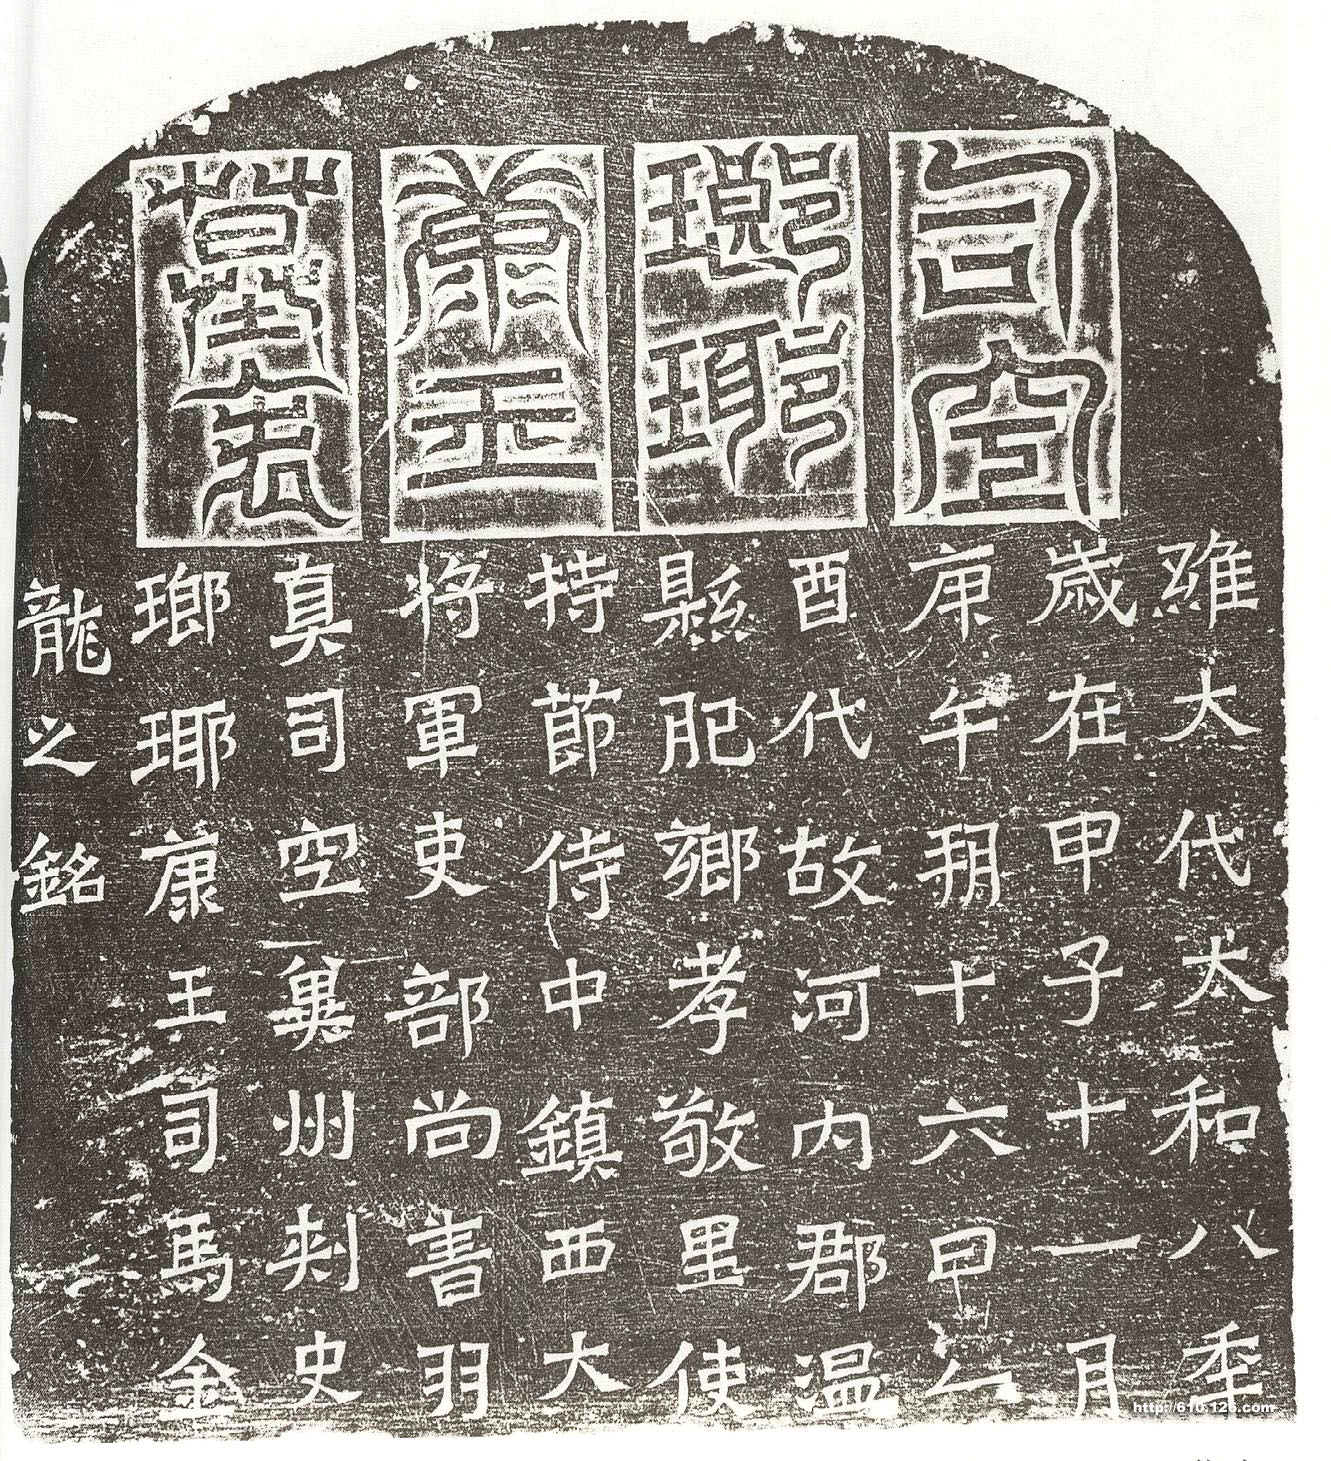 司空
瑯瑘
康王
墓表
維大代太和八年
歲在甲子十一月
庚午朔十六日乙
酉代故河內郡温
縣肥鄉孝敬里使
持節侍中鎮西大
將軍吏部尚書羽
真司空冀州刺史
瑯瑘康王司馬金
龍之銘
http://610.126.com